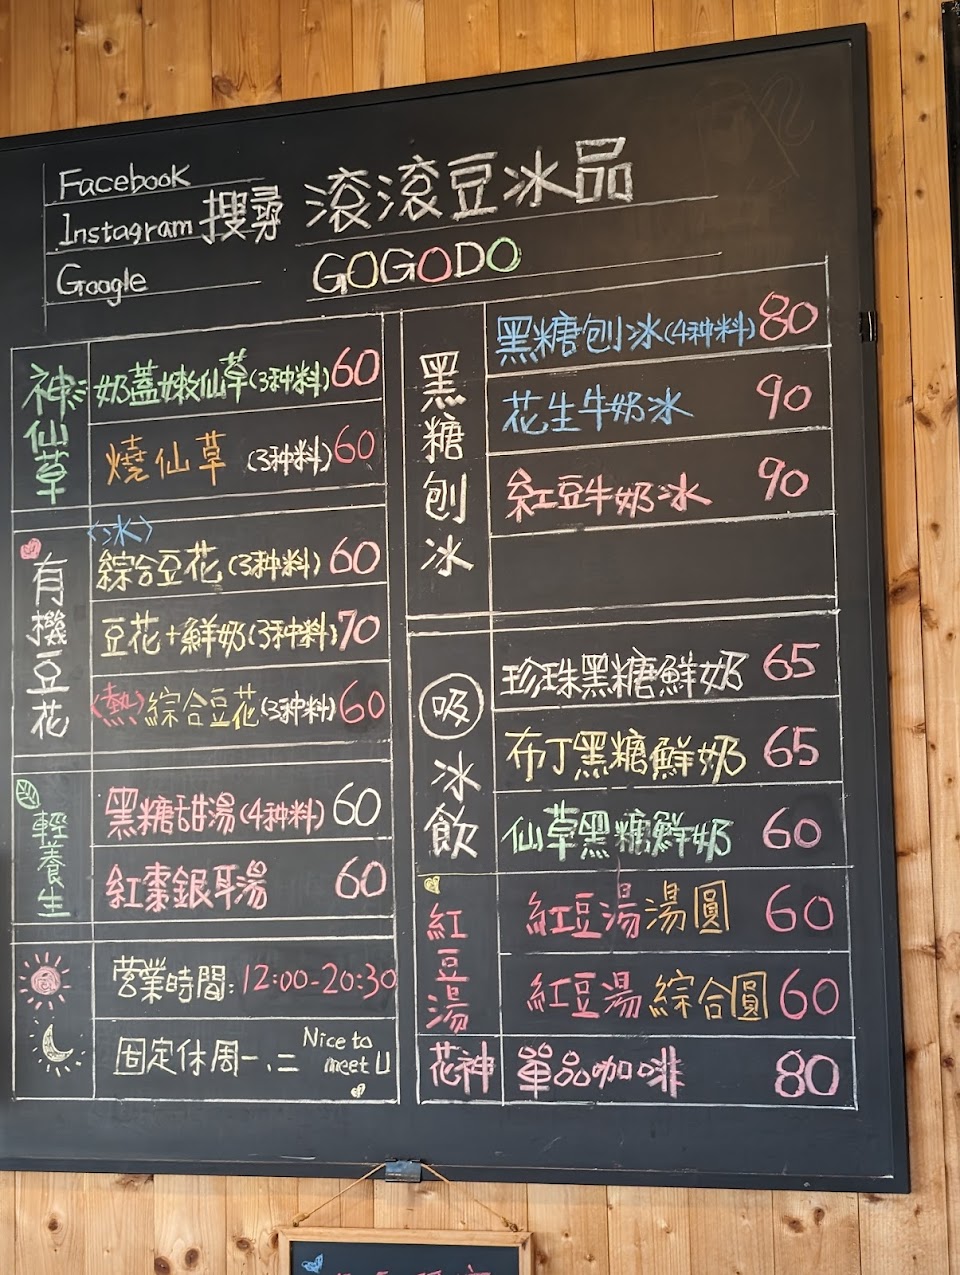 Facebook
Instagram 搜尋 滾滾豆冰品
Google GOGODO
神仙草
奶蓋嫩仙草(3种料) 60
燒仙草 (3种料) 60
有機豆花
<冰>
綜合豆花(3种料) 60
豆花+鮮奶(3种料) 70
<熱>綜合豆花(3种料) 60
輕養生
黑糖甜湯(4种料) 60
紅棗銀耳湯 60
营業時間:12:00-20:30
固定休周一、二 Nice to
meet U
黑糖刨冰
黑糖刨冰(4种料) 80
花生牛奶冰 90
紅豆牛奶冰 90
吸冰飲
珍珠黑糖鮮奶 65
布丁黑糖鮮奶 65
仙草黑糖鮮奶 60
紅豆湯
紅豆湯湯圓 60
紅豆湯綜合圓 60
花神 單品咖啡 80